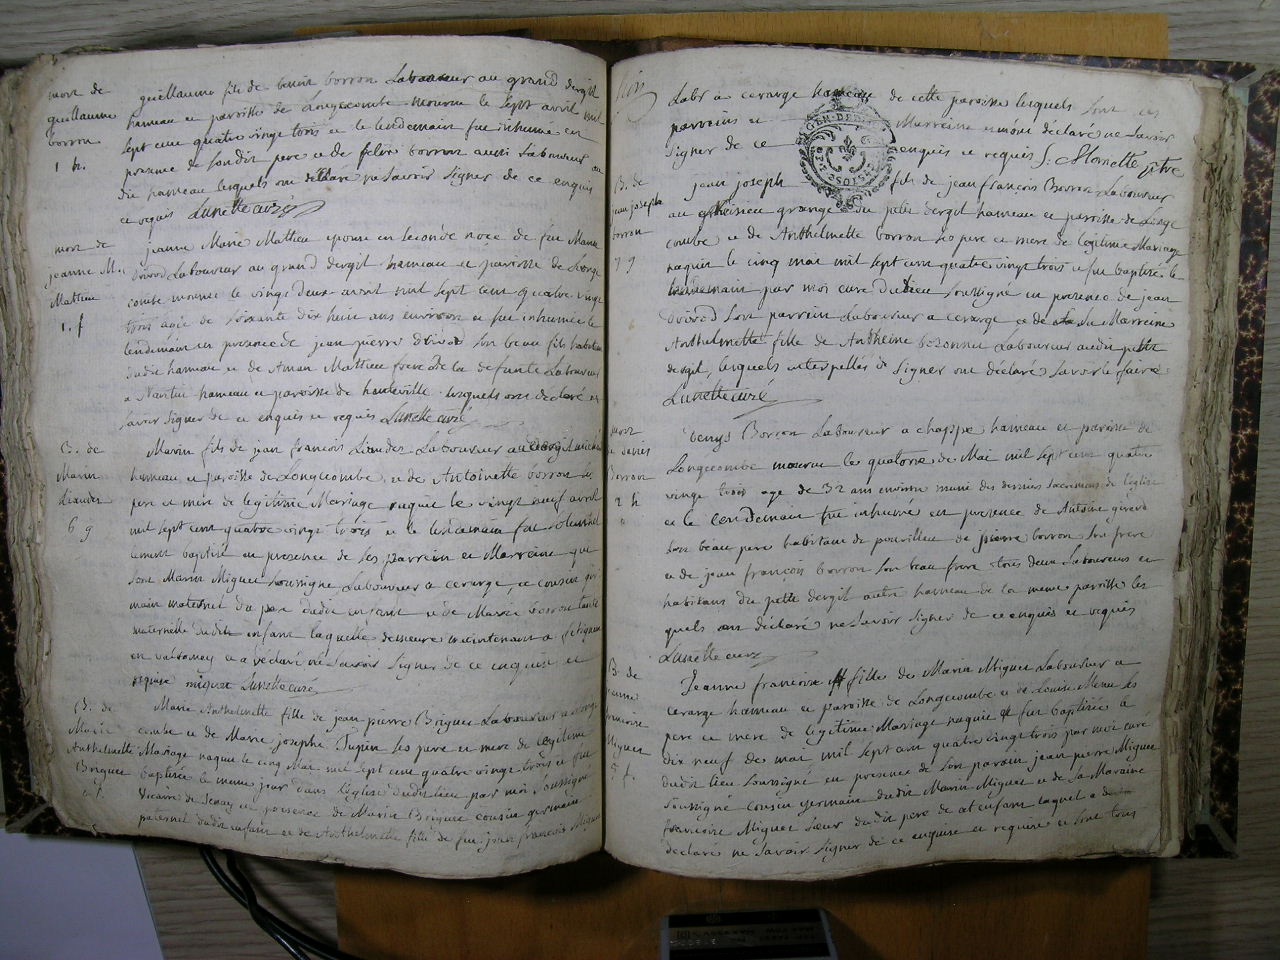 mort de
guillaume
borron
1 h.
guillaume fils de benoit borron Laboureur au grand dergit
hameau et paroisse de Longecombe mourut le sept avril mil
sept cent quatre vingt trois et le lendemain fut inhumé en
presence de son dit pere et de felix borron aussi Laboureur au
dit hameau lesquels ont declaré ne savoir signer de ce enquis
et requis Lunette curé
mort de
jeanne M.
Mathieu
1. f
jeanne Marie Mathieu epouse en seconde noce de feu
Laboureur au grand dergit hameau et paroisse de Longe
combe mourut le vingt deux avril mil sept cent quatre vingt
trois agée de soixante dix huit ans environ et fut inhumée le
lendemain en presence de jean pierre son beau fils habitant
dudit hameau et de Mathieu frere de la defunte Laboureur
a hameau et paroisse de hauteville lesquels ont declaré ne
savoir signer de ce enquis et requis Lunette curé
B. de
Marin
6 g
Marin fils de jean françois Laboureur au dergit
hameau et paroisse de Longecombe et de Antoinette borron ses
pere et mere de legitime Mariage naquit le vingt neuf avril
mil sept cent quatre vingt trois et le lendemain fut solemnel
lement baptisé en presence de ses parrein et Marreine qui
sont Marin Miguet soussigné Laboureur a cerarge, et cousin ger
main maternel du pere dudit enfant et de Marie borron tante
maternelle dudit enfant laquelle demeure maintenant a
en valromey et a declaré ne savoir signer de ce enquise et
requise miguet Lunette curé
B. de
Marie
Anthelmette
Briguet
Marie Anthelmette fille de jean pierre Briguet Laboureur a Longe
combe et de Marie josephe Tupin ses pere et mere de legitime
Mariage naquit le cinq Mai mil sept cent quatre vingt trois et fut
baptisée le meme jour dans l'eglise dudit lieu par moi soussigné
vicaire de et presence de Marin Briguet cousin germain
paternel dudit enfant et de Anthelmette fille de feu jean françois Miguet
Labr a cerarge hameau de cette paroisse lesquels sont ses
parreins et Marreine et m'ont déclaré ne savoir
signer de ce enquis et requis ptre
B. de
jean joseph
borron
7 g
jean joseph fils de jean françois Borron Laboureur
au grange du petit dergit hameau et paroisse de Longe
combe et de Anthelmette borron ses pere et mere de legitime Mariage
naquit le cinq mai mil sept cent quatre vingt trois et fut baptisé le
lendemain par moi curé dudit lieu soussigné en presence de jean
son parrein Laboureur a cerarge et de sa Marreine
Anthelmette fille de Anthelme bozonnet Laboureur audit petit
dergit, lesquels interpellés de signer ont declaré savoir faire
Lunette curé
mort
de denis
Borron
2 h
denys Borron Laboureur a chappe hameau et paroisse de
Longecombe mourut le quatorze de Mai mil sept cent quatre
vingt trois agé de 32 ans environ muni des derniers sacremens de l'eglise
et le lendemain fut inhumé en presence de Antoine girerd
son beau pere habitant de de pierre borron son frere
et de jean françois borron son beau frere tous deux Laboureurs et
habitans du petit dergit autre hameau de la meme paroisse les
quels ont déclaré ne savoir signer de ce enquis et requis
Lunette curé
B. de
jeanne
françoise
Miguet
5 f.
Jeanne françoise fille de Marin Miguet Laboureur a
cerarge hameau et paroisse de Longecombe et de Louise ses
pere et mere de legitime Mariage naquit et fut baptisée le
dix neuf de mai mil sept cent quatre vingt trois par moi curé
dudit lieu soussigné en presence de son parrain jean pierre Miguet
soussigné cousin germain dudit Marin Miguet et de sa Maraine
françoise Miguet sœur dudit pere de cet enfant laquelle a
declaré ne savoir signer de ce enquise et requise et sont tous